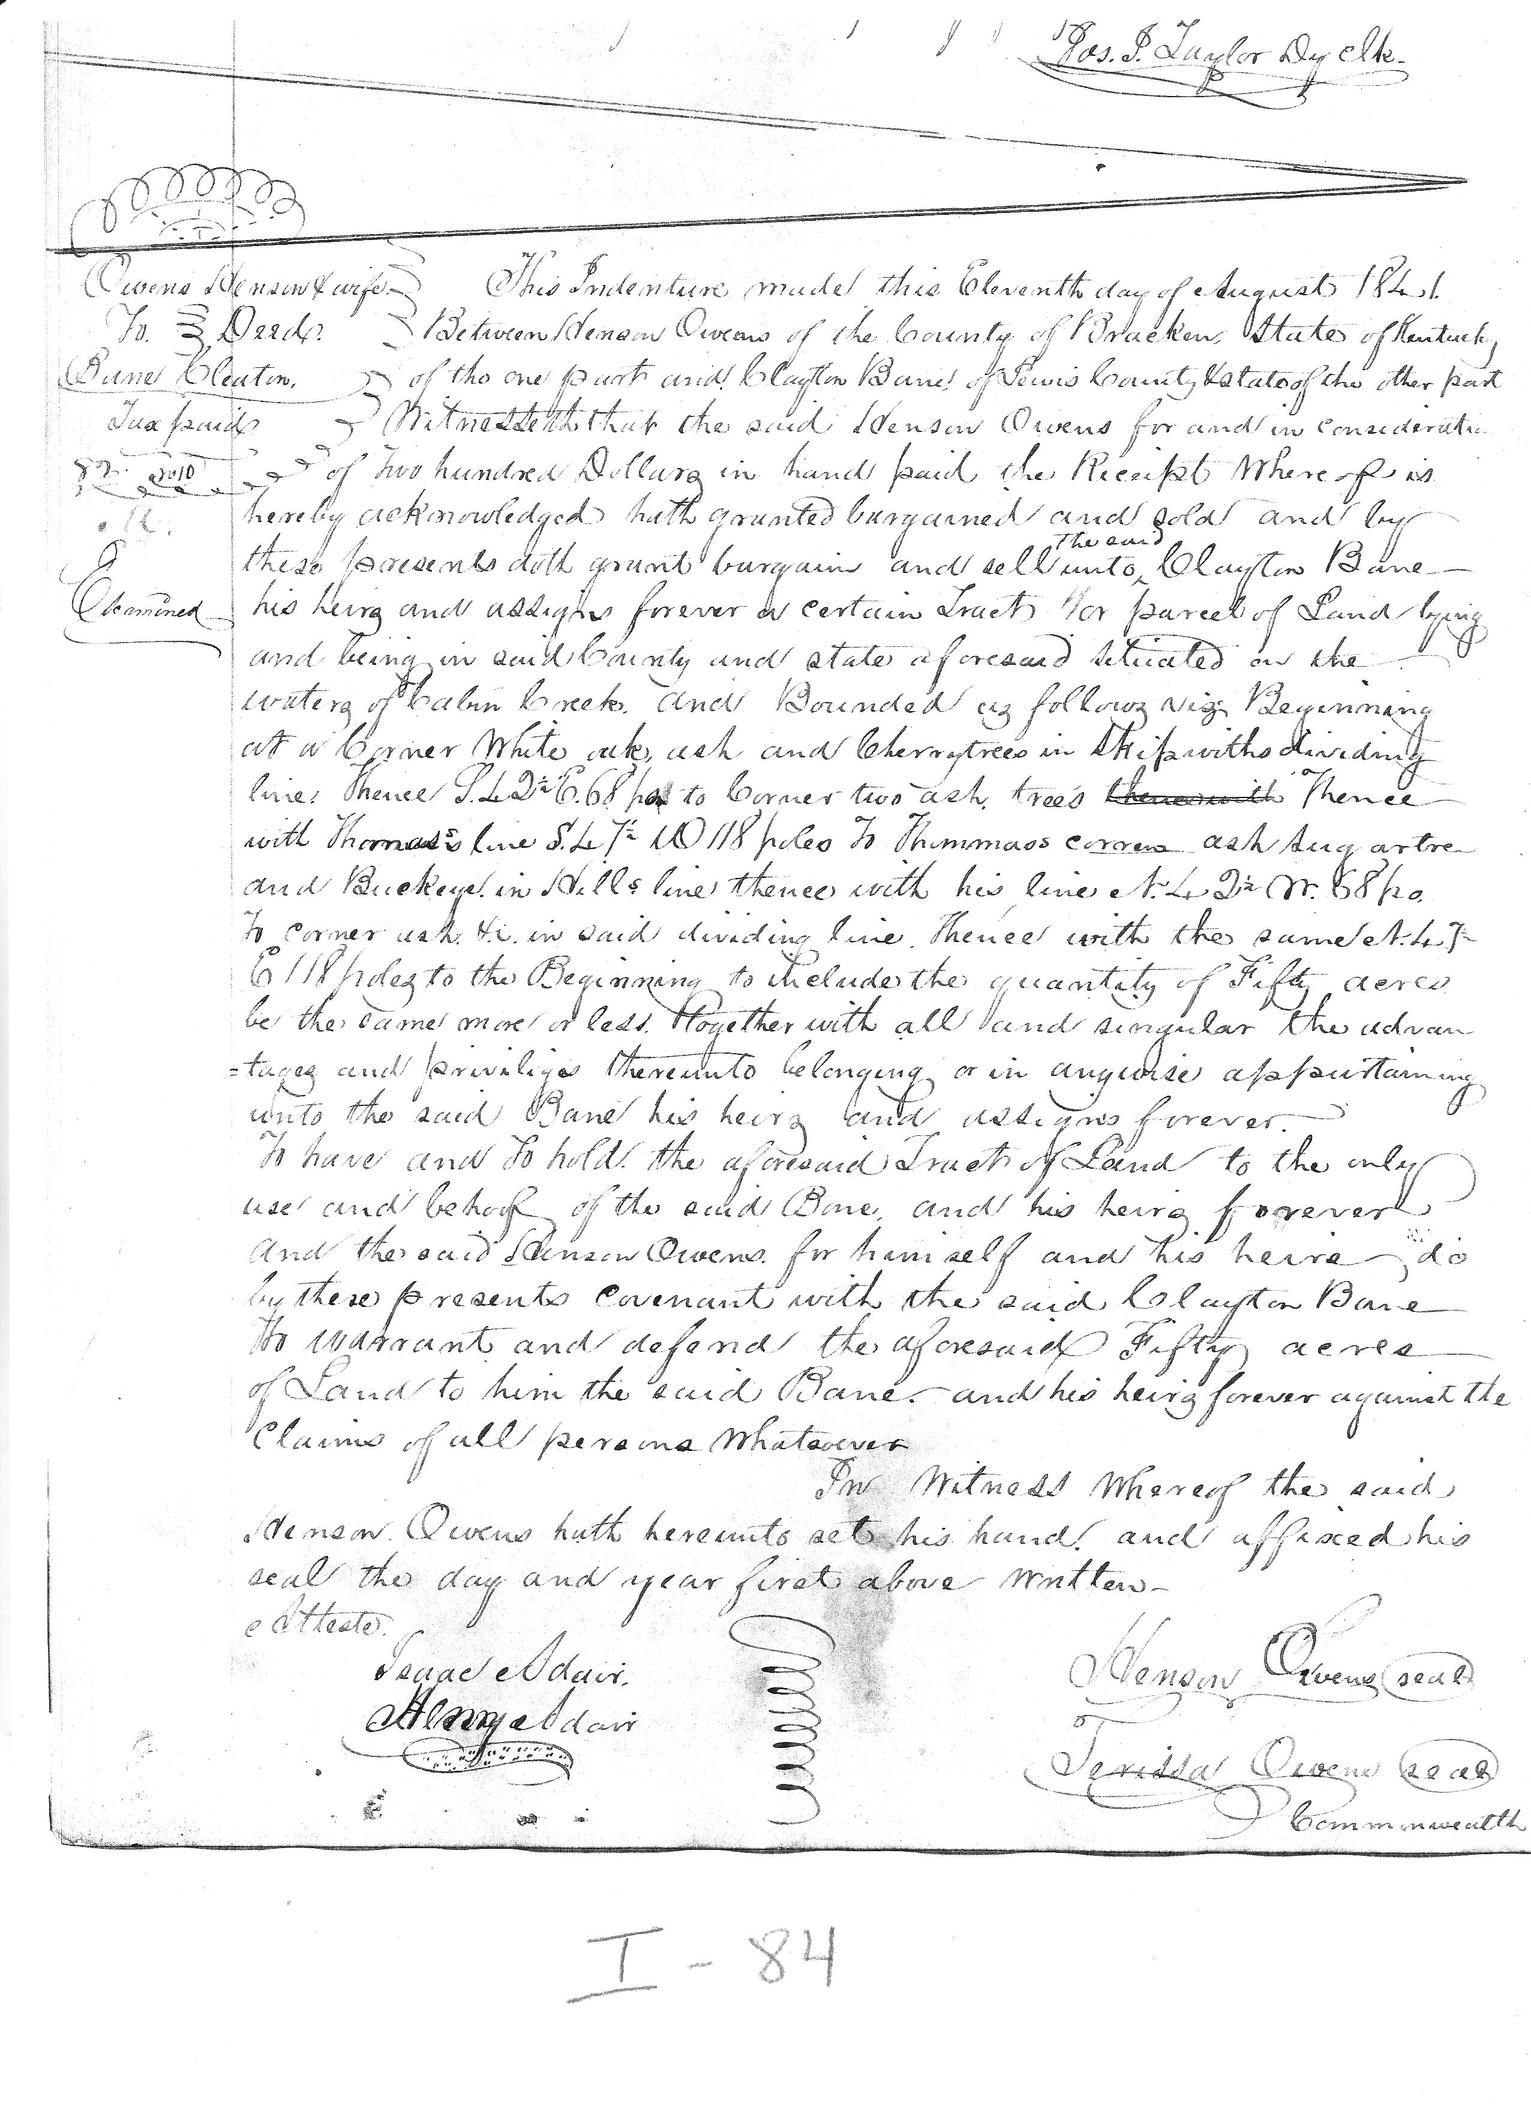 Jos. P. Taylor Dy clk.
Owens Henson & wife
To Deed.
Bane Cleaton.
Tax paid
Examined
This Indenture made this Eleventh day of August 1841.
Between Henson Owens of the County of Bracken, State of Kentucky
of the one part and Clayton Bane of Lewis County & state of the other part
Witnesseth that the said Henson Owens for and in consideratio
of Two hundred Dollars in hand paid the Receipt Whereof is
hereby acknowledged hath granted bargained and sold and by
these presents doth grant bargain and sell unto the said Clayton Bane
his heirs and assigns forever a certain Tract or parcel of Land lying
and being in said County and state aforesaid situated on the
waters of Cabin Creek. and Bounded as follows viz Beginning
at a Corner White oak, ash and Cherrytrees in Skipwiths dividing
line. Thence S. 42½ E. 68 po to Corner two ash trees Thence
with Thomas's line S. 47½ W 118 poles To Thommass corner ash sugartree
and Buckeye in Hills line thence with his line N. 42½ W. 68 po.
To corner ash &c. in said dividing line. Thence with the same N. 47½
E 118 poles to the Beginning to include the quantity of Fifty acres
be the same more or less. together with all and singular the advan
=tages and priviliges thereunto belonging or in anywise appurtaining
unto the said Bane his heirs and assigns forever.
To have and To hold the aforesaid Tract of Land to the only
use and behoof of the said Bane, and his heirs forever
And the said Henson Owens. for himself and his heirs do
by these presents covenant with the said Clayton Bane
To warrant and defend the aforesaid Fifty acres
of Land to him the said Bane. and his heirs forever against the
Claims of all persons Whatsoever
In Witness Whereof the said
Henson Owens hath hereunto set his hand. and affixed his
seal the day and year first above Written
Atteste.
Isaac Adair.
Henry Adair
Henson Owens seal
Terissa Owens seal
Commonwealth
I - 84